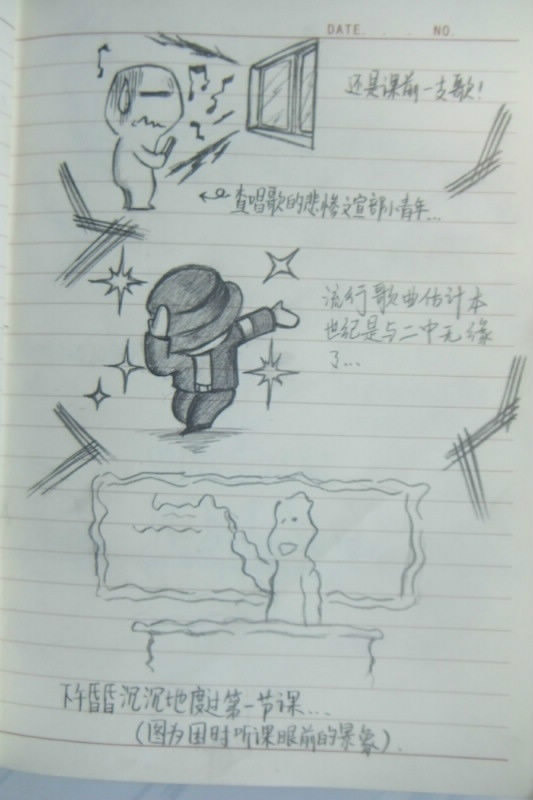 DATE. . . . NO.
还是课前一支歌!
查唱歌的悲惨文宣部小青年...
流行歌曲估计本
世纪是与二中无缘
了...
下午昏昏沉沉地度过第一节课...
(图为困时听课眼前的景象).